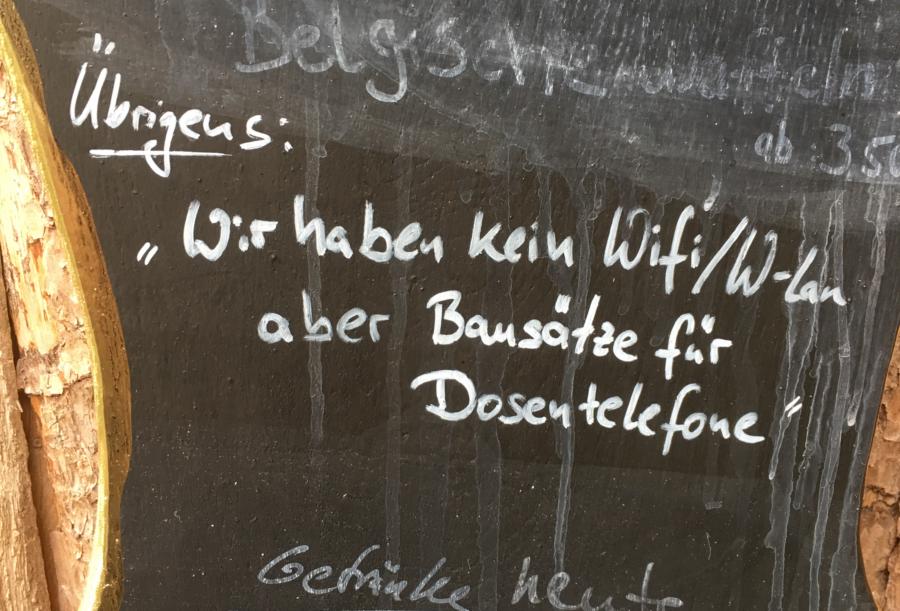 Belgische Waffeln
ab 3.50
Übrigens:
„Wir haben kein Wifi/W-Lan
aber Bausätze für
Dosentelefone"
Getränke heute